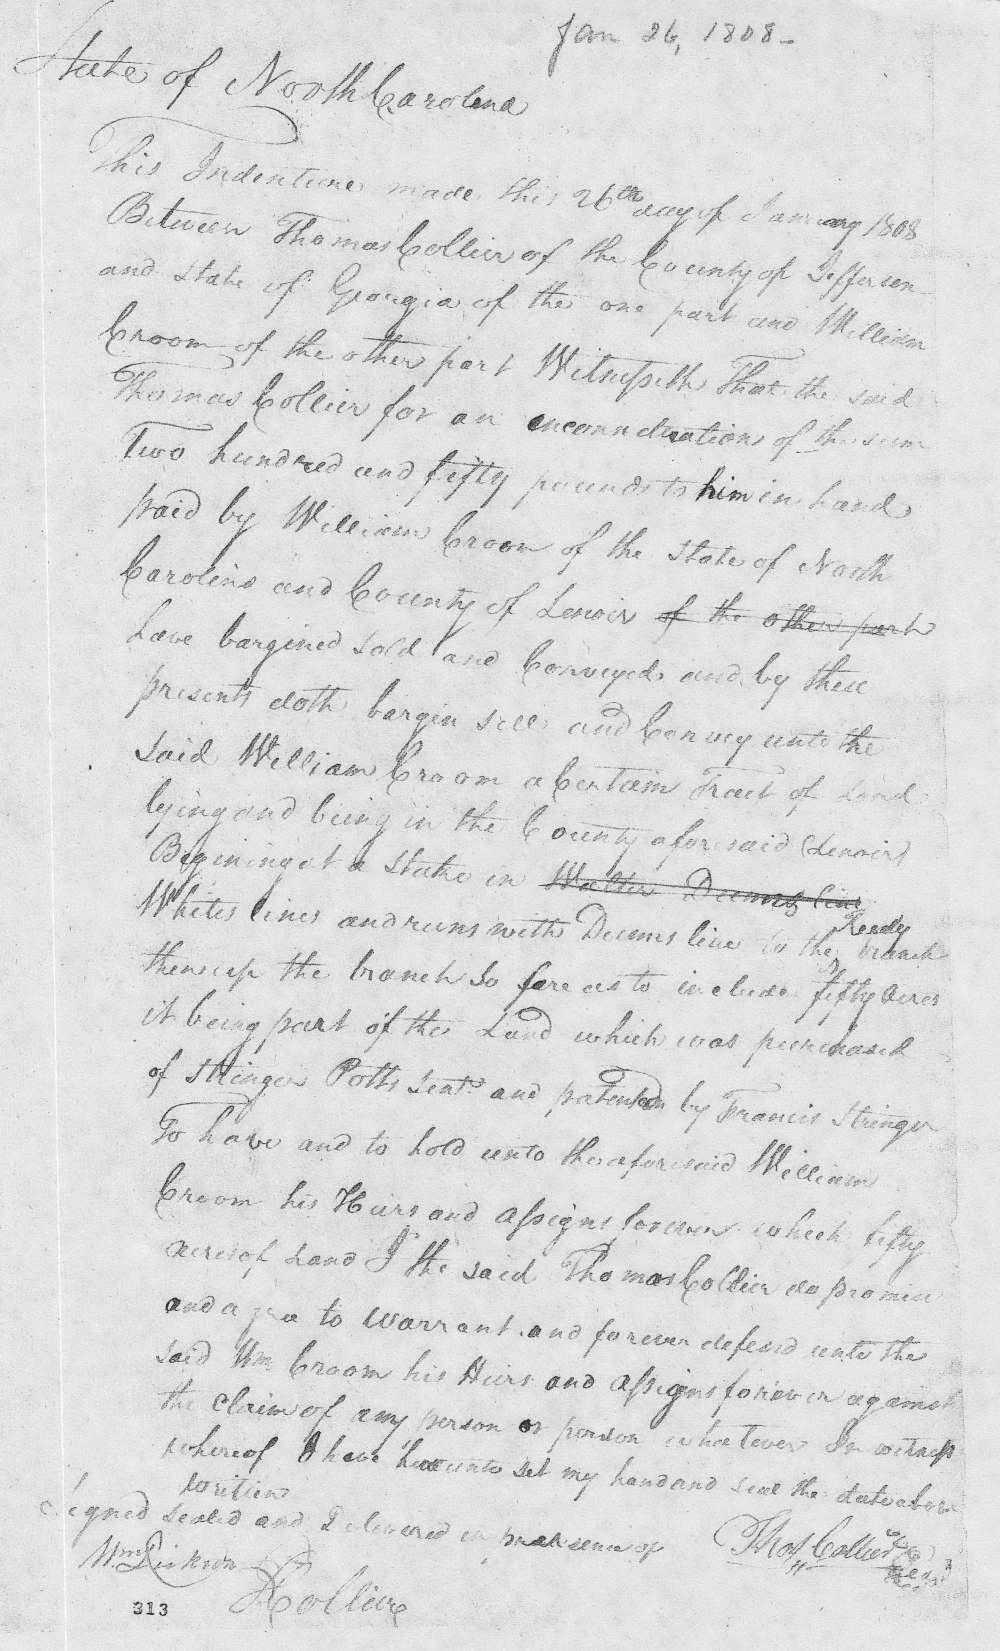 Jan 26, 1808-
State of North Carolina
This Indenture made this 26th day of January 1808
Between Thomas Collier of the County of Jefferson
and State of Georgia of the one part and William
Croom of the other part Witnesseth That the said
Thomas Collier for an in of the sum
Two hundred and fifty pounds to him in hand
paid by William Croom of the State of North
Carolina and County of Lenoir of the other part
have bargined sold and Conveyed and by these
presents doth bargin sell and Convey unto the
said William Croom a Certain Tract of Land
lying and being in the County aforesaid (Lenoir)
Begining at a Stake in Walter line
Whites lines and runs with line to the Reedy branch
then up the branch so fare as to include fifty acres
it being part of the Land which was purchased
of Stringer Potts and by Francis Stringer
To have and to hold unto the aforesaid William
Croom his Heirs and assigns forever which fifty
acres of Land I the said Thomas Collier do promise
and agree to warrant and forever defend unto the
said Wm Croom his Heirs and assigns forever against
the claim of any person or person whatever In witness
whereof I have hereunto set my hand and seal the date above
written
Signed sealed and Delivered in presence of
Thos Collier Seal
Wm
Collier
313